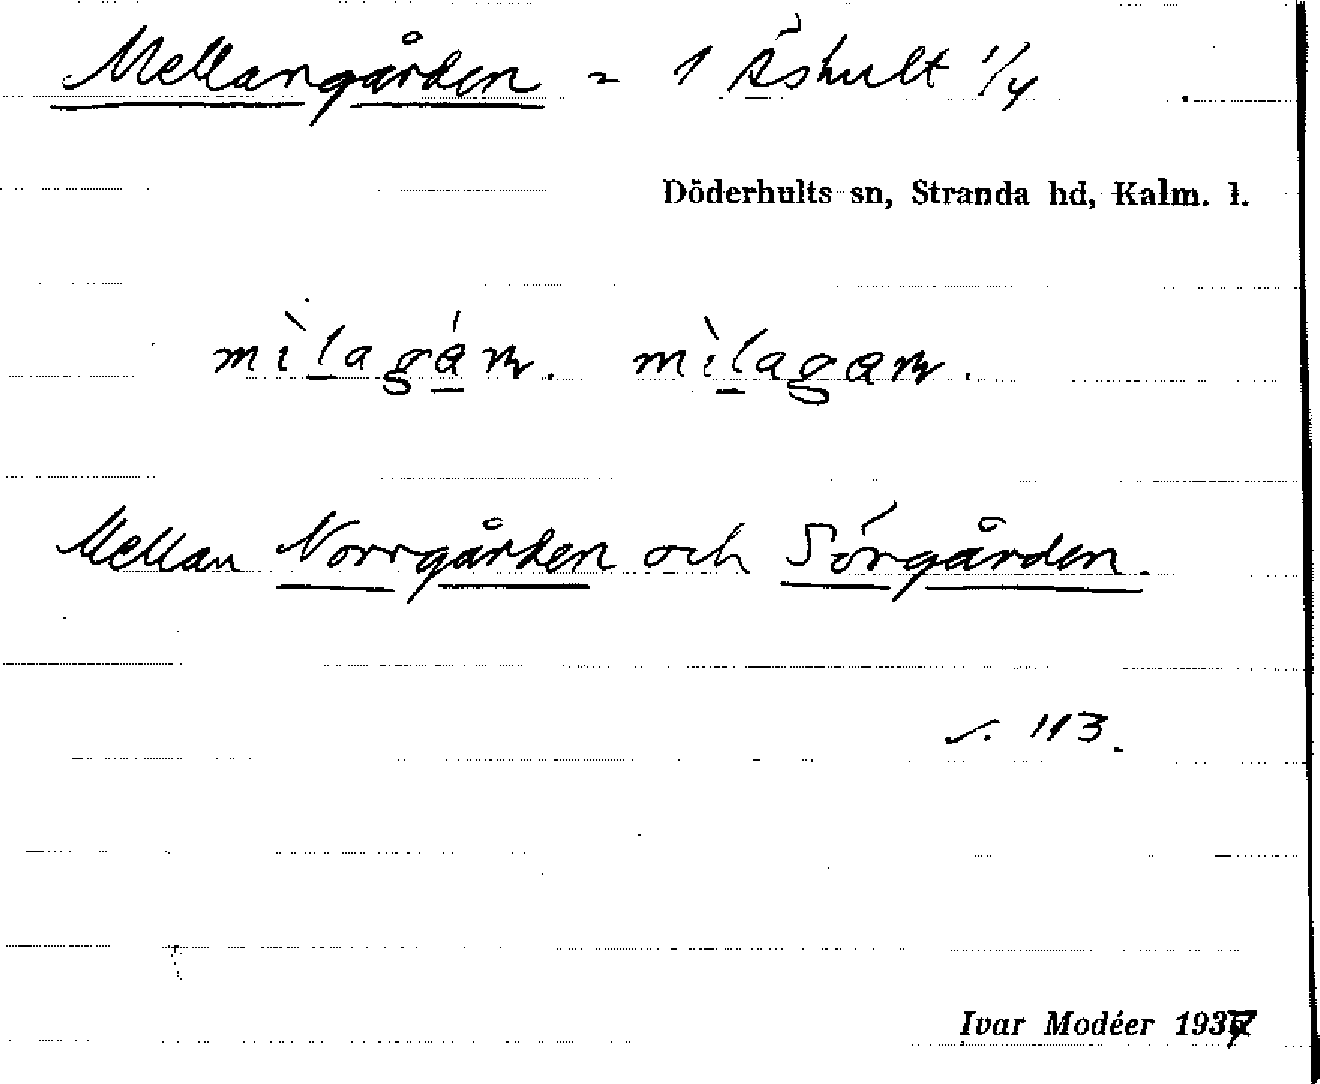 Mellangården = 1 Äshult 1/4
Döderhults sn, Stranda hd, Kalm. l.
Mellan Norrgården och Sörgården.
s. 113.
Ivar Modéer 1937